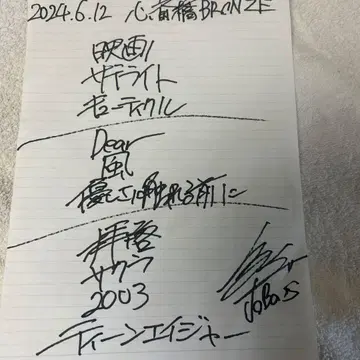 2024.6.12 心斎橋BRONZE
映画
サテライト
キューティクル
Dear
風
優しさに触れる前に
拝啓
サクラ
2003
ティーンエイジャー